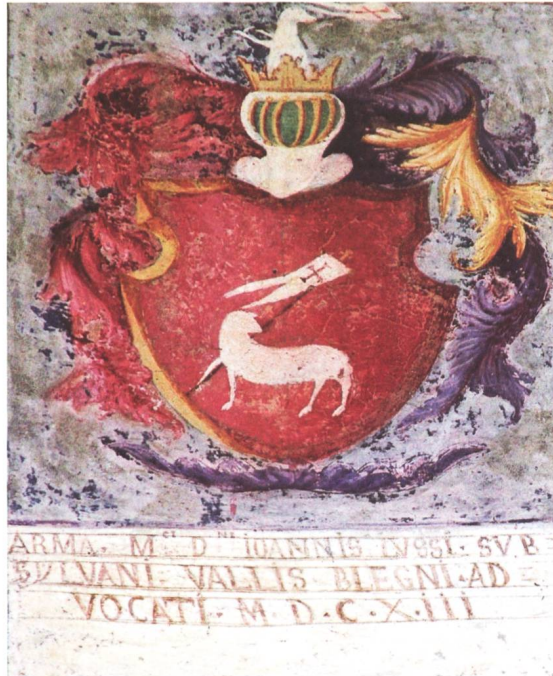 ARMA. M^CI D^NI IOANNIS LVSSI. SVB
SYLVANI. VALLIS BLEGNI. AD=
VOCATI. M. D. C. X. III